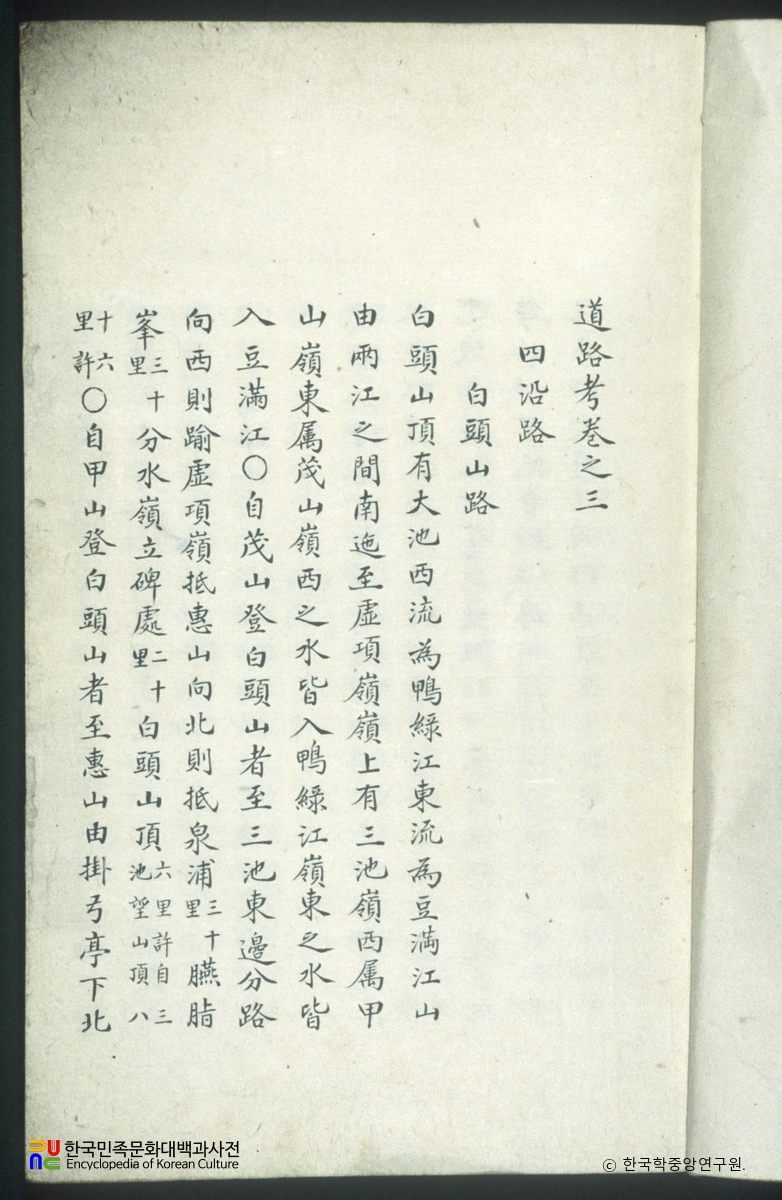 道路考巻之三
四沿路
白頭山路
白頭山頂有大池西流為鴨綠江東流為豆滿江山
由兩江之間南迤至虛項嶺嶺上有三池嶺西属甲
山嶺東属茂山嶺西之水皆入鴨綠江嶺東之水皆
入豆滿江〇自茂山登白頭山者至三池東邊分路
向西則踰虛項嶺抵惠山向北則抵泉浦三十里臙脂
峯三十里分水嶺立碑處二十里白頭山頂六里許自三池望山頂八
十六里許〇自甲山登白頭山者至惠山由掛弓亭下北
한국민족문화대백과사전
Encyclopedia of Korean Culture
© 한국학중앙연구원.